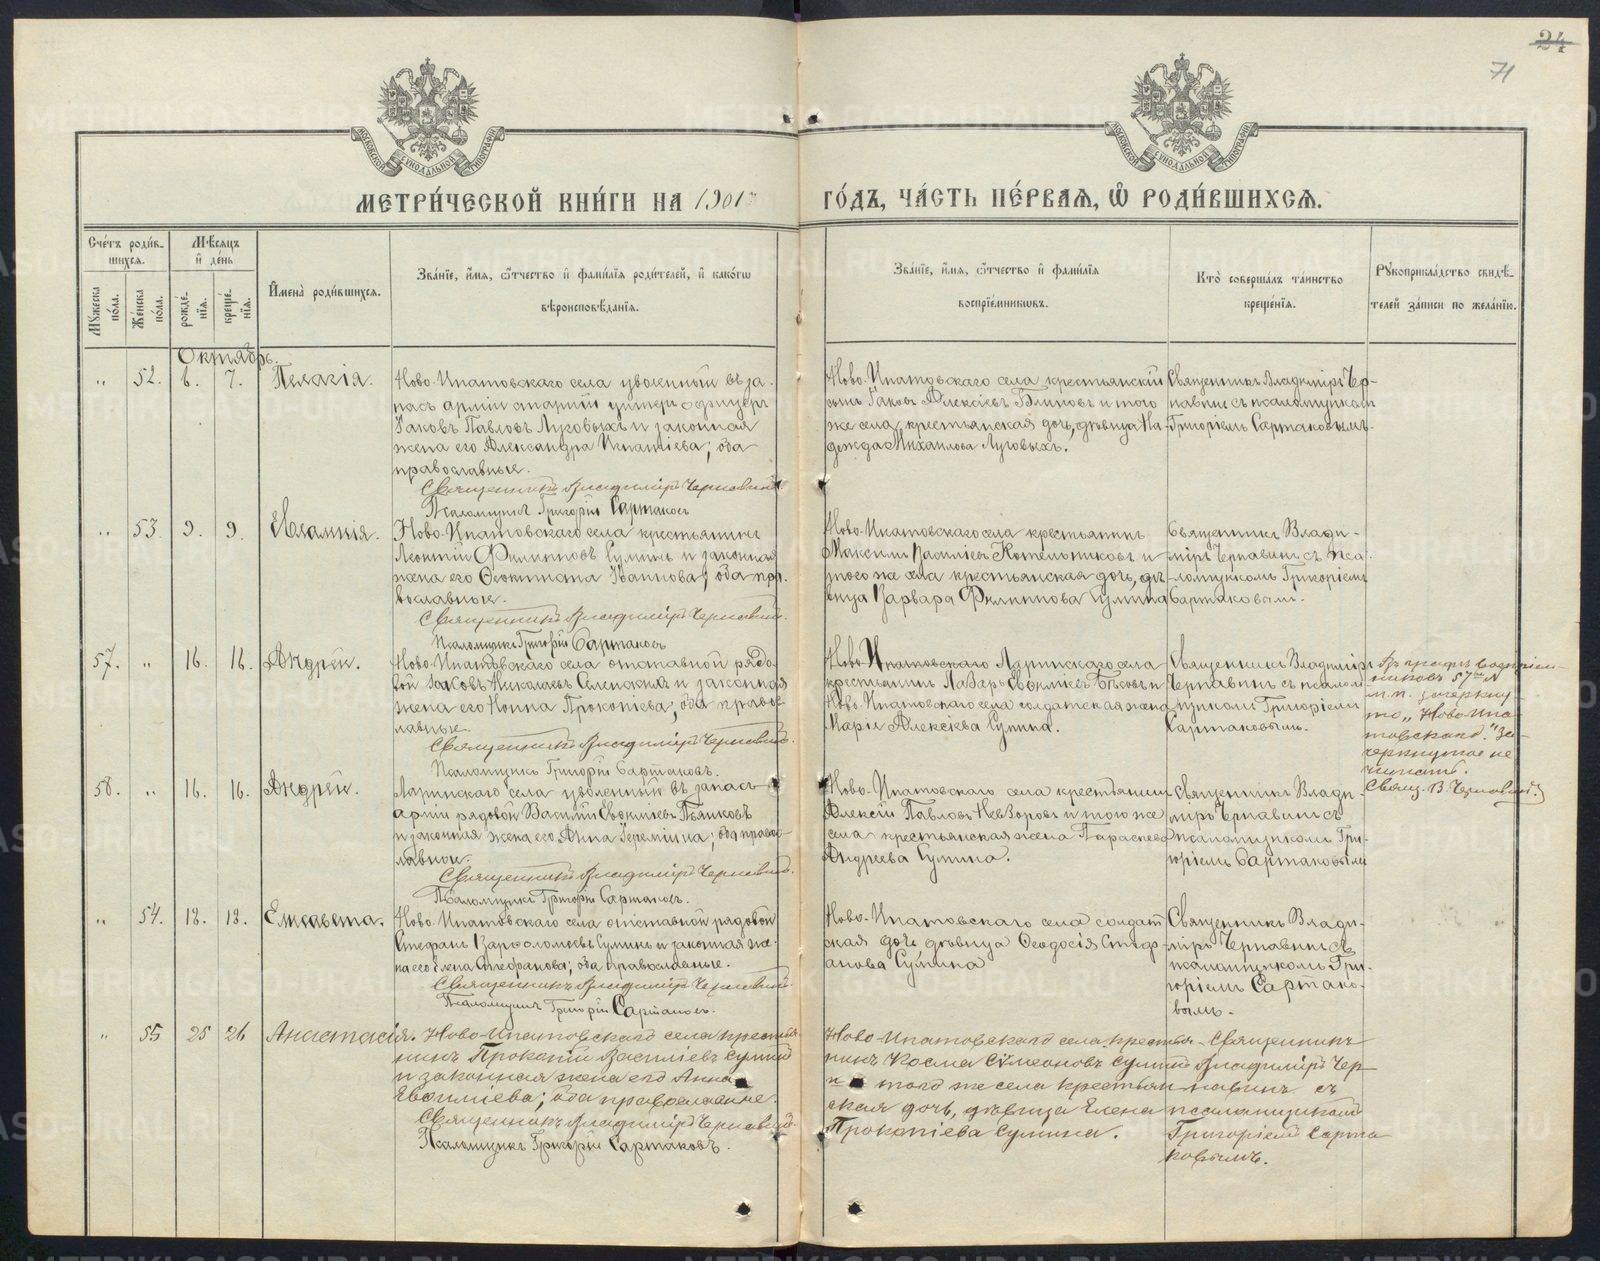 24
71
МОСКОВСКОЙ СѴНОДАЛЬНОЙ ТИПОГРАФІИ
МОСКОВСКОЙ СѴНОДАЛЬНОЙ ТИПОГРАФІИ
МЕТРИ́ЧЕСКОЙ КНИ́ГИ НА 1901й
ГО́ДЪ, ЧА́СТЬ ПЕ́РВАѦ, Ѡ҆ РОДИ́ВШИХСѦ.
Сче́тъ роди́в-
шихся.
Мѣ́сяцъ
и҆ де́нь
Му́жеска
по́ла.
Же́нска
по́ла.
рожде́-
нїя.
креще́-
нїя.
И҆мена̀ роди́вшихся.
Зва́нїе, и҆́мя, ѻ҆́тчество и҆ фами́лїя роди́телей, и҆ како́гѡ
вѣроисповѣ́данїя.
Зва́нїе, и҆́мя, ѻ҆́тчество и҆ фами́лїя
воспрїе́мникѡвъ.
Кто̀ соверша́лъ та́инство
креще́нїя.
Рꙋкоприкла́дство свидѣ́-
телей за́писи по жела́нїю.
Октябрь.
„ 52. 6. 7. Пелагія.
Ново-Ипатовскаго села уволенный въ за-
пасъ арміи старшій унтеръ офицеръ
Іаковъ Павловъ Луговыхъ и законная
жена его Александра Игнатіева; оба
православные.
Священникъ Владиміръ Чернавинъ.
Псаломщикъ Григорій Сартаковъ
Ново-Ипатовскаго села крестьянскій
сынъ Іаковъ Алексіевъ Блиновъ и того
же села, крестьянская дочь, дѣвица На-
дежда Михаилова Луговыхъ.
Священникъ Владиміръ Чер-
навинъ съ псаломщикомъ
Григоріемъ Сартаковымъ.
„ 53. 9. 9. Евлампія.
Ново-Ипатовскаго села крестьянинъ
Леонтій Филипповъ Сулинъ и законная
жена его Ѳеоктиста Іванова; оба пра-
вославные.
Священникъ Владиміръ Чернавинъ.
Псаломщикъ Григорій Сартаковъ
Ново-Ипатовскаго села крестьянинъ
Максимъ Василіевъ Котельниковъ и
того же села крестьянская дочь, дѣ-
вица Варвара Филиппова Сулина
Священникъ Влади-
міръ Чернавинъ съ пса-
ломщикомъ Григоріемъ
Сартаковымъ.
57. „ 16. 16. Андрей.
Ново-Ипатовскаго села отставной рядо-
вой Іаковъ Николаевъ Селенскихъ и законная
жена его Нонна Прокопіева; оба правос-
лавные.
Священникъ Владиміръ Чернавинъ.
Псаломщикъ Григорій Сартаковъ.
Ново-Ипатовскаго Ларинскаго села
крестьянинъ Лазарь Евфиміевъ Бѣсовъ и
Ново-Ипатовскаго села солдатская жена
Марія Алексіева Сулина.
Священникъ Владиміръ
Чернавинъ съ псалом-
щикомъ Григоріемъ
Сартаковымъ.
Въ графѣ воспріем-
никовъ 57го №
м. п. зачеркну-
то „Ново-Ипа-
товскаго." За-
черкнутое не
читать.
Свящ. В. Чернавинъ.
58. „ 16. 16. Андрей.
Ларинскаго села уволенный въ запасъ
арміи рядовой Василій Евфиміевъ Пьянковъ
и законная жена его Анна Іереміина; оба право-
лавные.
Священникъ Владиміръ Чернавинъ.
Псаломщикъ Григорій Сартаковъ.
Ново-Ипатовскаго села крестьянинъ
Алексій Павловъ Невзоровъ и того же
села крестьянская жена Параскева
Андреева Сулина.
Священникъ Влади-
міръ Чернавинъ съ
псаломщикомъ Гри-
горіемъ Сартаковымъ
„ 54. 18. 18. Елисавета.
Ново-Ипатовскаго села отставной рядовой
Стефанъ Варфоломеевъ Сулинъ и законная же-
на его Елена Стефанова; оба православные.
Священникъ Владиміръ Чернавинъ.
Псаломщикъ Григорій Сартаковъ.
Ново-Ипатовскаго села солдат-
ская дочь дѣвица Ѳеодосія Стеф-
анова Сулина
Священникъ Влади-
міръ Чернавинъ съ
псаломщикомъ Гри-
горіемъ Сартако-
вымъ.
„ 55 25 26 Анастасія.
Ново-Ипатовскаго села кресть-
нинъ Прокопій Василіевъ Сулинъ
и законная жена его Анна
Евфиміева; оба православные.
Священникъ Владиміръ Чернавинъ.
Псаломщикъ Григорій Сартаковъ.
Ново-Ипатовскаго села крестья-
нинъ Косма Сѵмеоновъ Сулинъ
и того же села крестьян-
ская дочь, дѣвица Елена
Прокопіева Сулина.
Священникъ
Владиміръ Чер-
навинъ съ
псаломщикомъ
Григоріемъ Сарта-
ковымъ.
METRIKI.GASO-URAL.RU